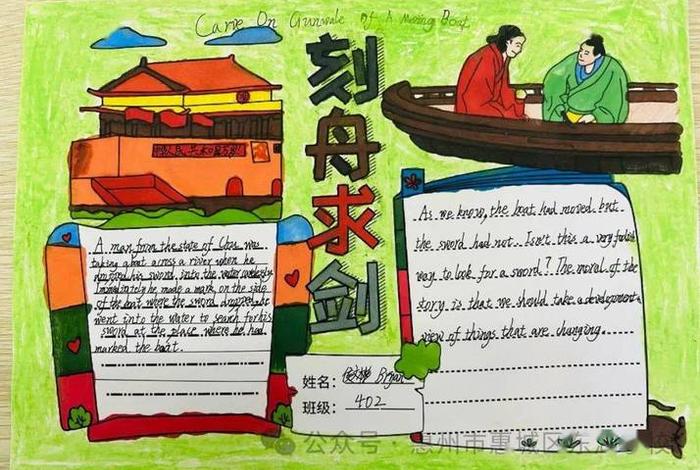 Carve On Gunwale of A Moving Boat
刻舟求剑
A man from the state of Chu was
taking a boat across a river when he
dropped his sword into the water carelessly.
Immediately he made a mark on the side
of the boat where the sword dropped. He
went into the water to search for his
sword at the place where he had
marked the boat.
As we know, the boat had moved but
the sword had not. Isn't this a very foolish
way to look for a sword? The moral of the
story is that we should take a development
view of things that are changing.
姓名: Bryan
班级: 402
公众号·惠州市惠城区东